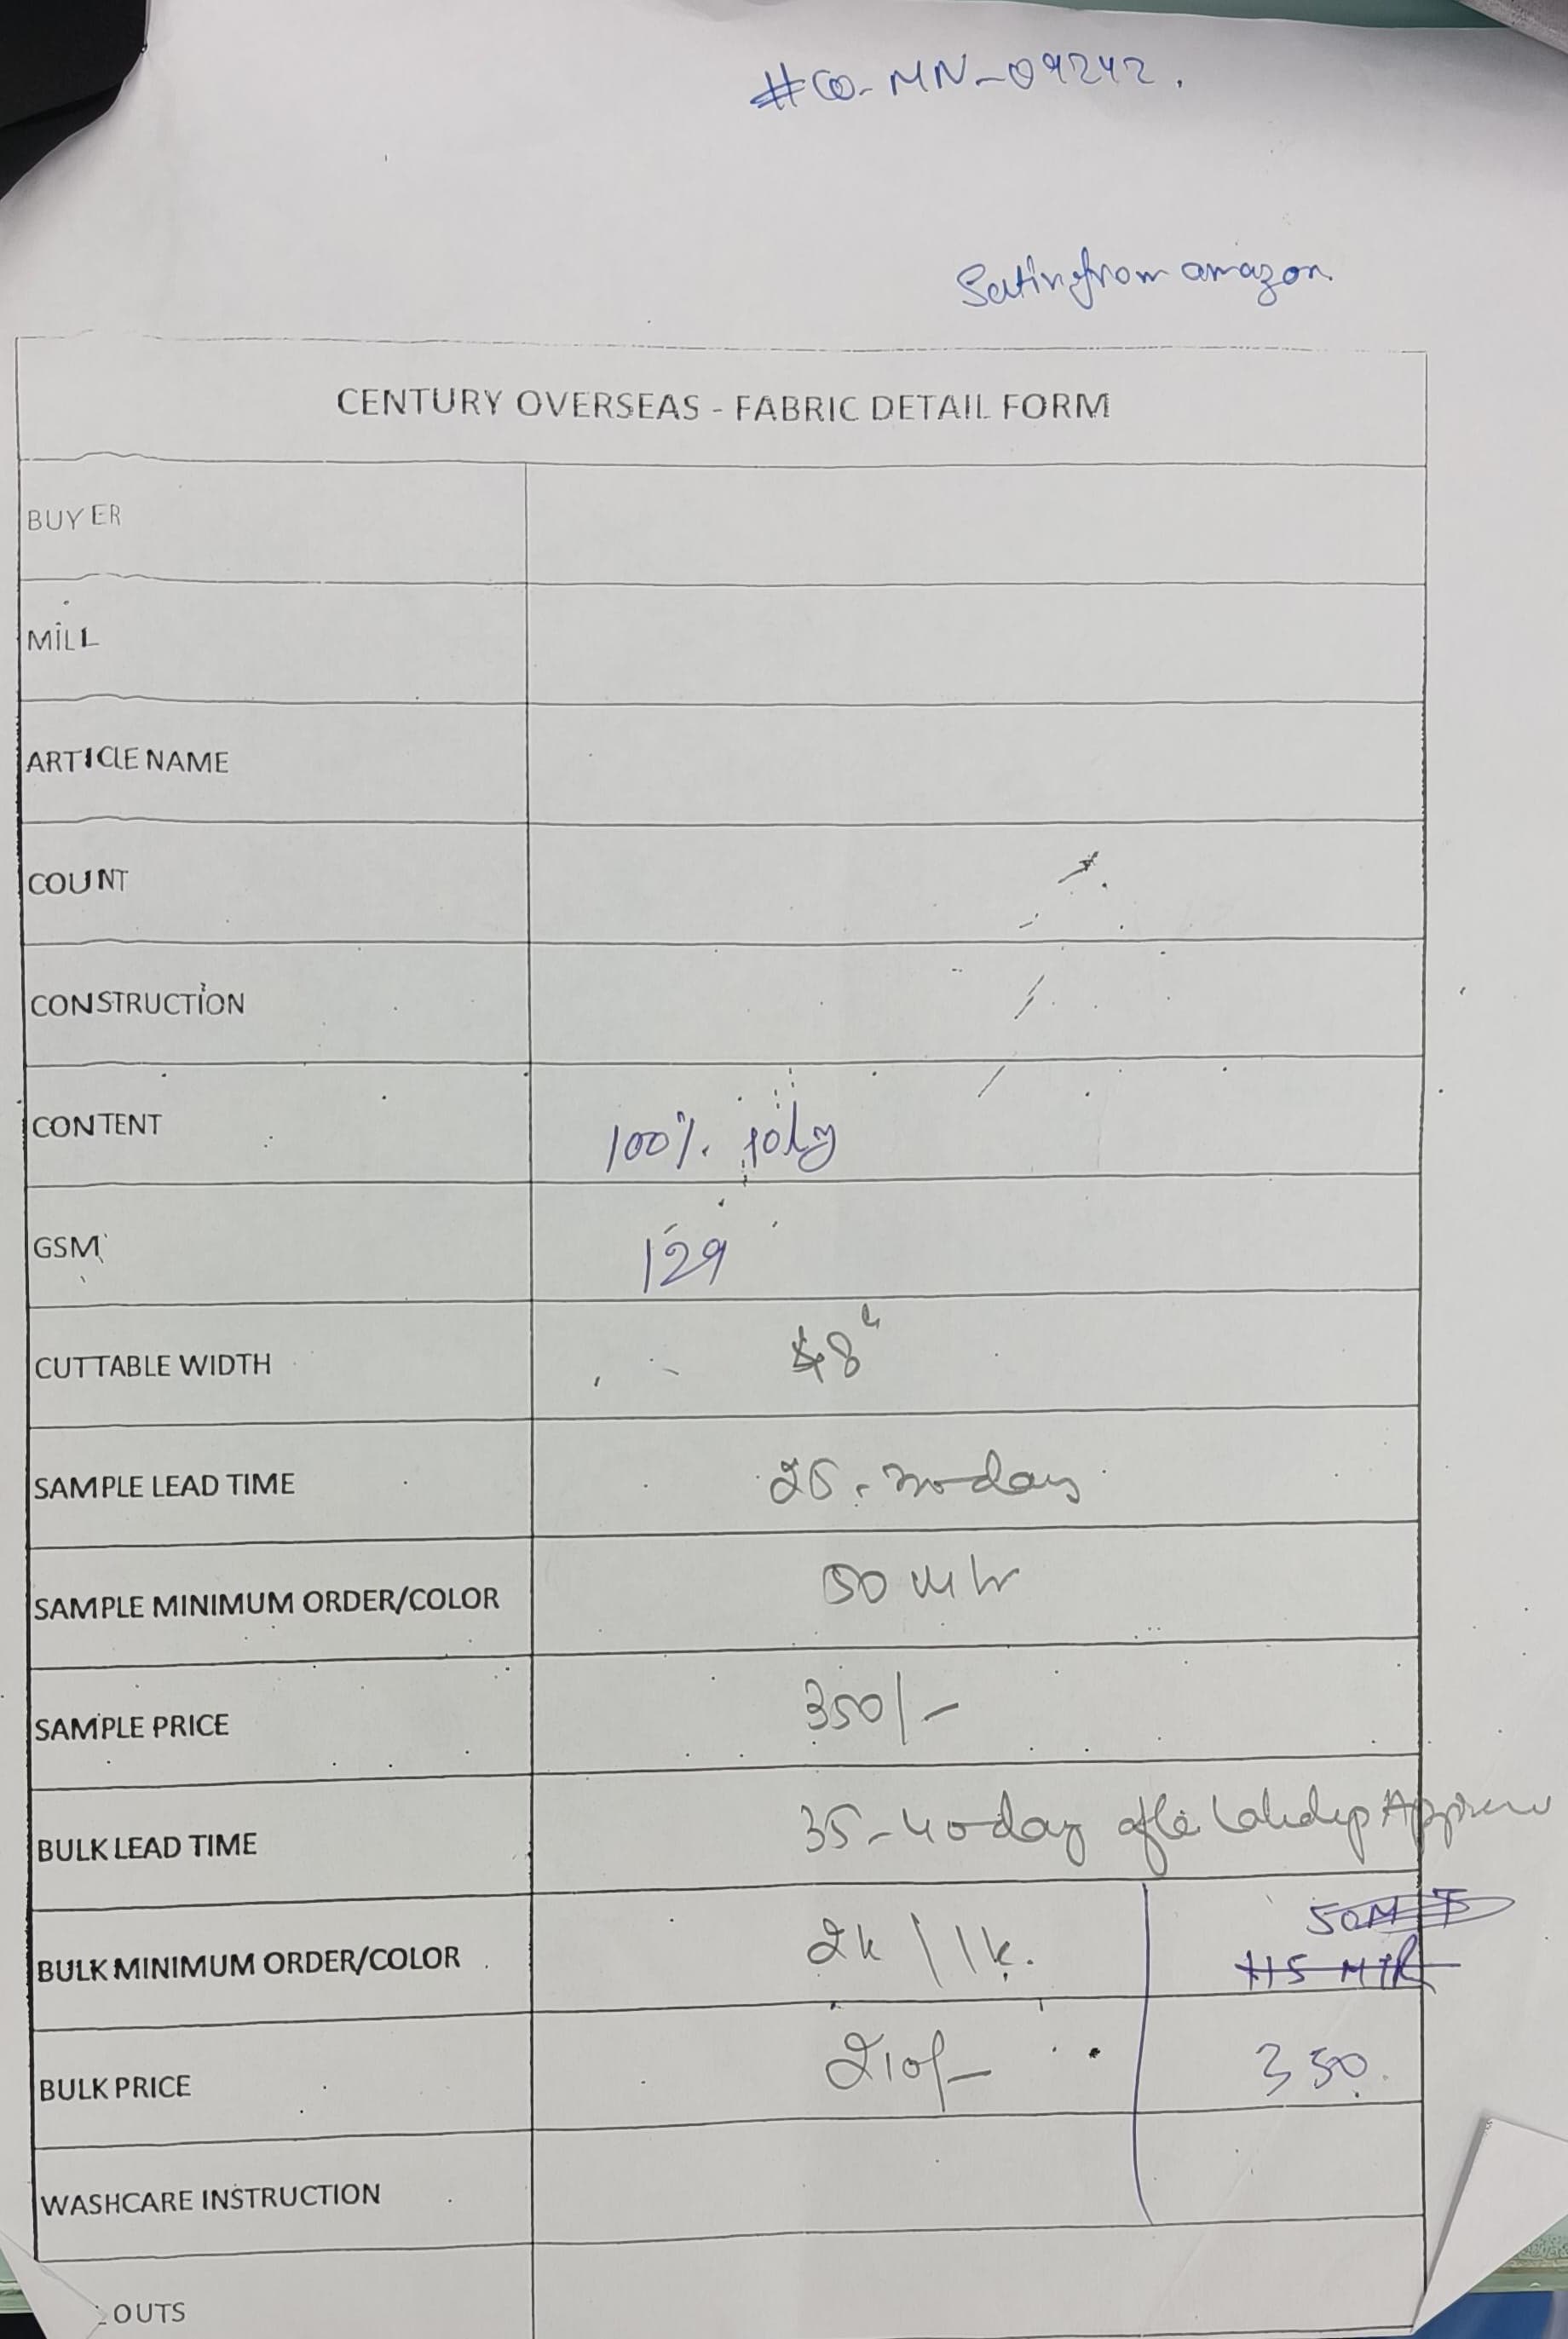 #CO-MN-09242.
Satin from amazon.
CENTURY OVERSEAS - FABRIC DETAIL FORM
BUYER
MILL
ARTICLE NAME
COUNT
CONSTRUCTION
CONTENT 100%. poly
GSM 129
CUTTABLE WIDTH 48"
SAMPLE LEAD TIME 25-30 days
SAMPLE MINIMUM ORDER/COLOR 50 mtr
SAMPLE PRICE 350/-
BULK LEAD TIME 35-40 day after Labdip
BULK MINIMUM ORDER/COLOR 2k / 1k.
BULK PRICE 210/- 350.
WASHCARE INSTRUCTION
OUTS